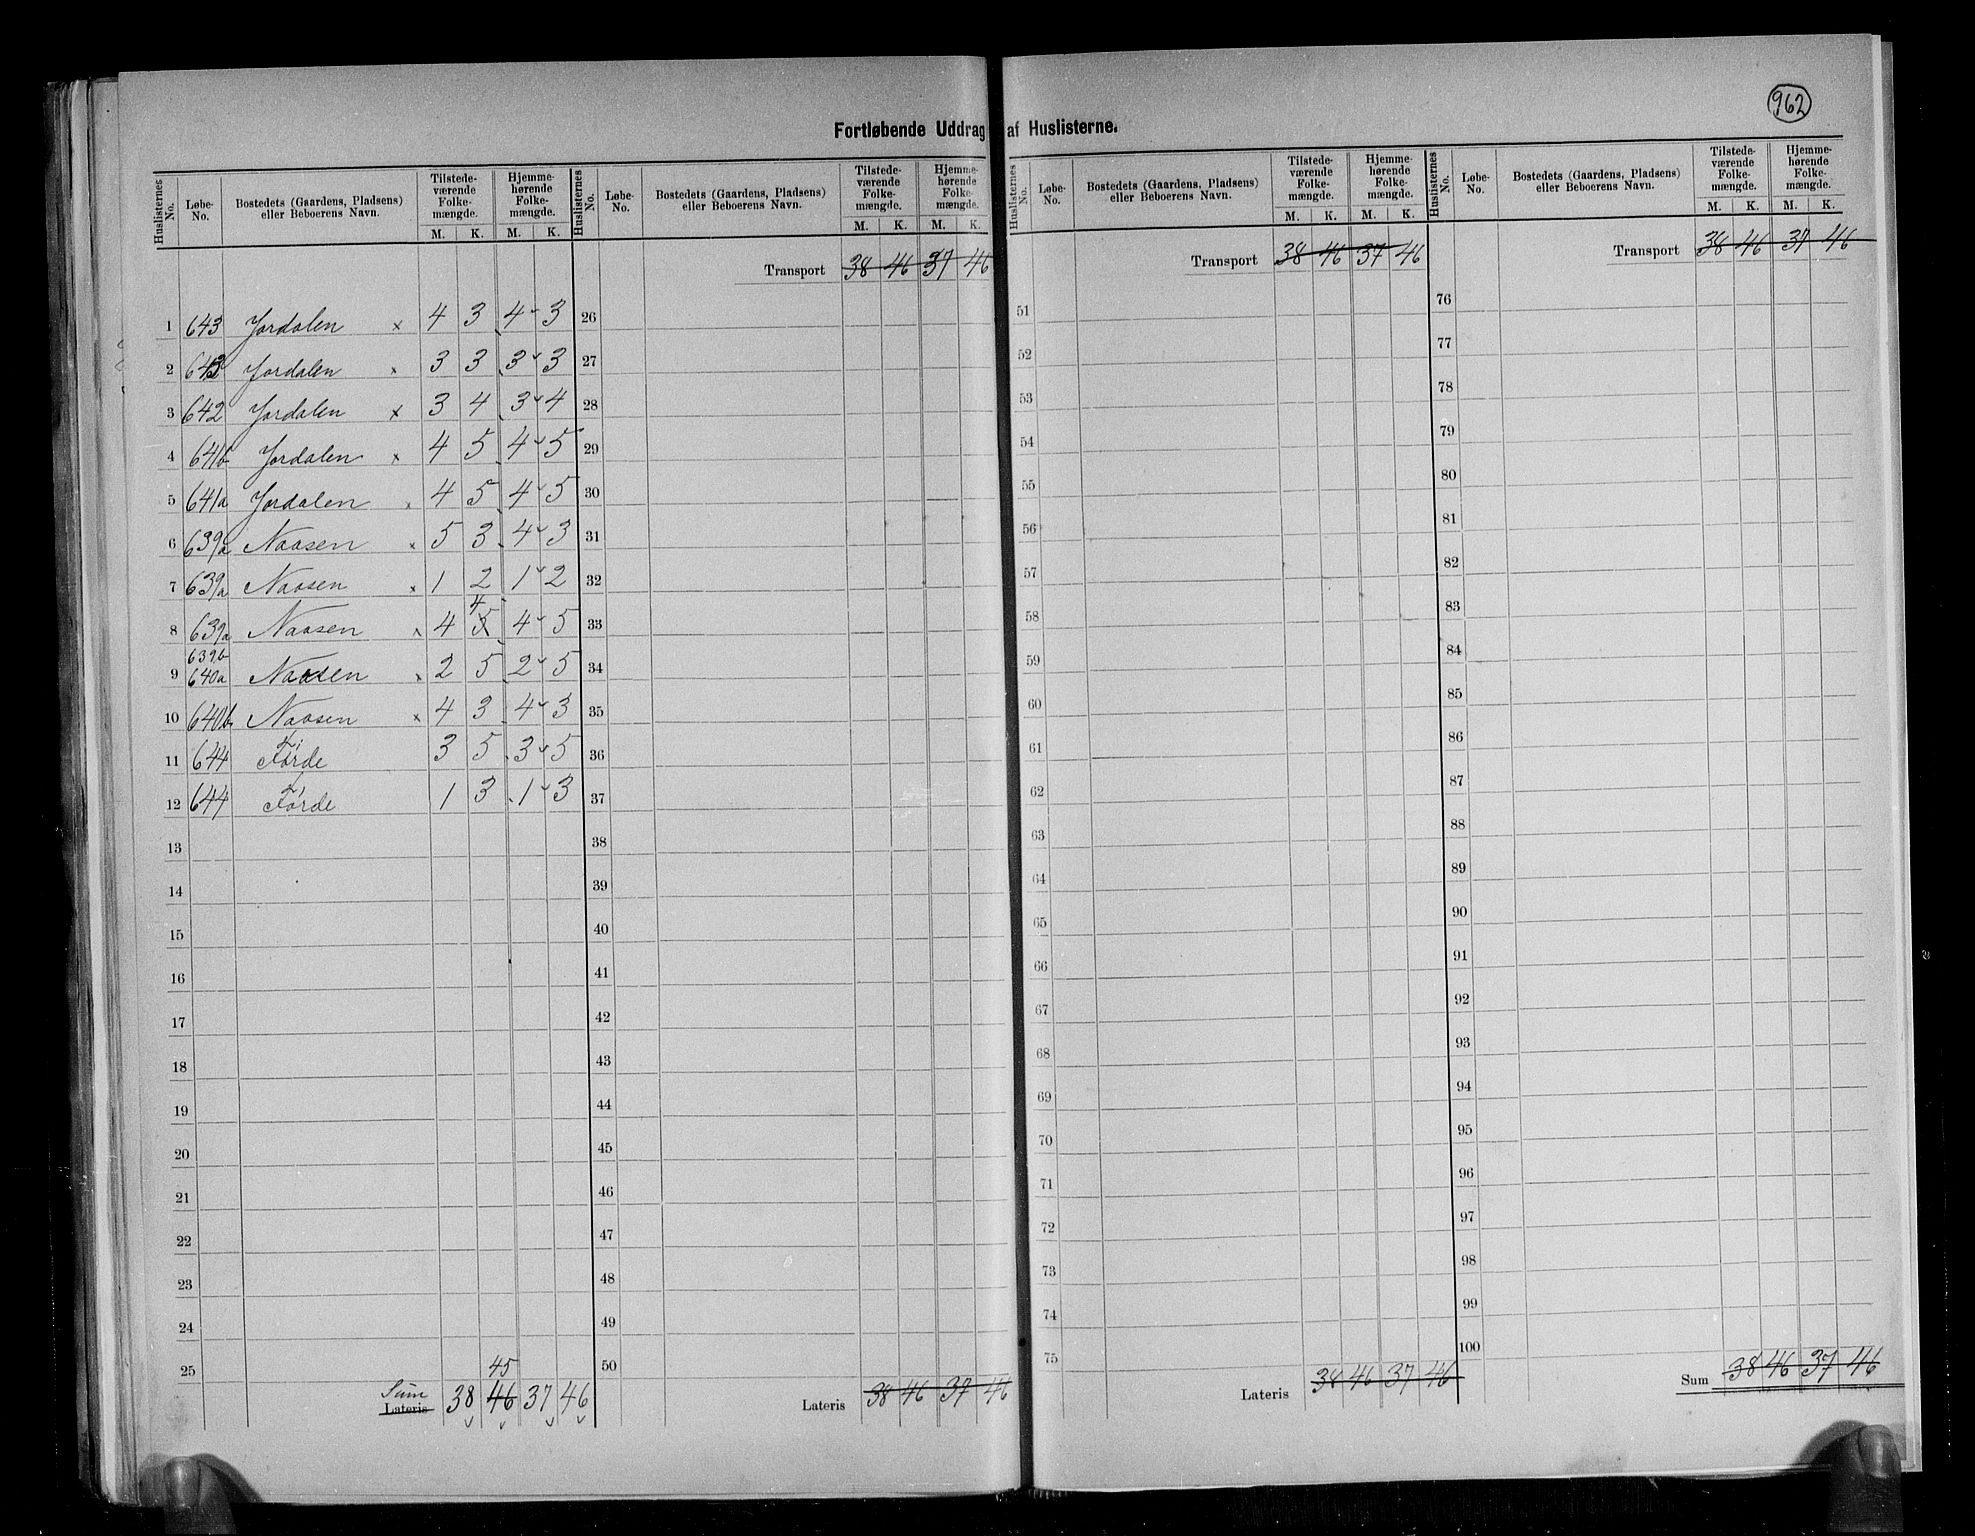 962
Fortløbende Uddrag af Huslisterne.
Huslisternes No. Løbe-No. Bostedets (Gaardens, Pladsens) eller Beboerens Navn. Tilstede-værende Folke-mængde. M. K. Hjemme-hørende Folke-mængde. M. K.
Huslisternes No. Løbe-No. Bostedets (Gaardens, Pladsens) eller Beboerens Navn. Tilstede-værende Folke-mængde. M. K. Hjemme-hørende Folke-mængde. M. K.
Huslisternes No. Løbe-No. Bostedets (Gaardens, Pladsens) eller Beboerens Navn. Tilstede-værende Folke-mængde. M. K. Hjemme-hørende Folke-mængde. M. K.
Huslisternes No. Løbe-No. Bostedets (Gaardens, Pladsens) eller Beboerens Navn. Tilstede-værende Folke-mængde. M. K. Hjemme-hørende Folke-mængde. M. K.
1 643 Jordalen x 4 3 4 3
2 643 Jordalen x 3 3 3 3
3 642 Jordalen x 3 4 3 4
4 641b Jordalen x 4 5 4 5
5 641a Jordalen x 4 5 4 5
6 639a Naasen x 5 3 4 3
7 639a Naasen x 1 2 1 2
4
8 639a Naasen x 4 5 4 5
639b
9 640a Naasen x 2 5 2 5
10 640b Naasen x 4 3 4 3
11 644 Førde 3 5 3 5
12 644 Førde 1 3 1 3
13
14
15
16
17
18
19
20
21
22
23
24
25
45
Sum
Lateris 38 46 37 46
Transport 38 46 37 46
26
27
28
29
30
31
32
33
34
35
36
37
38
39
40
41
42
43
44
45
46
47
48
49
50
Lateris 38 46 37 46
Transport 38 46 37 46
51
52
53
54
55
56
57
58
59
60
61
62
63
64
65
66
67
68
69
70
71
72
73
74
75
Lateris 38 46 37 46
Transport 38 46 37 46
76
77
78
79
80
81
82
83
84
85
86
87
88
89
90
91
92
93
94
95
96
97
98
99
100
Sum 38 46 37 46